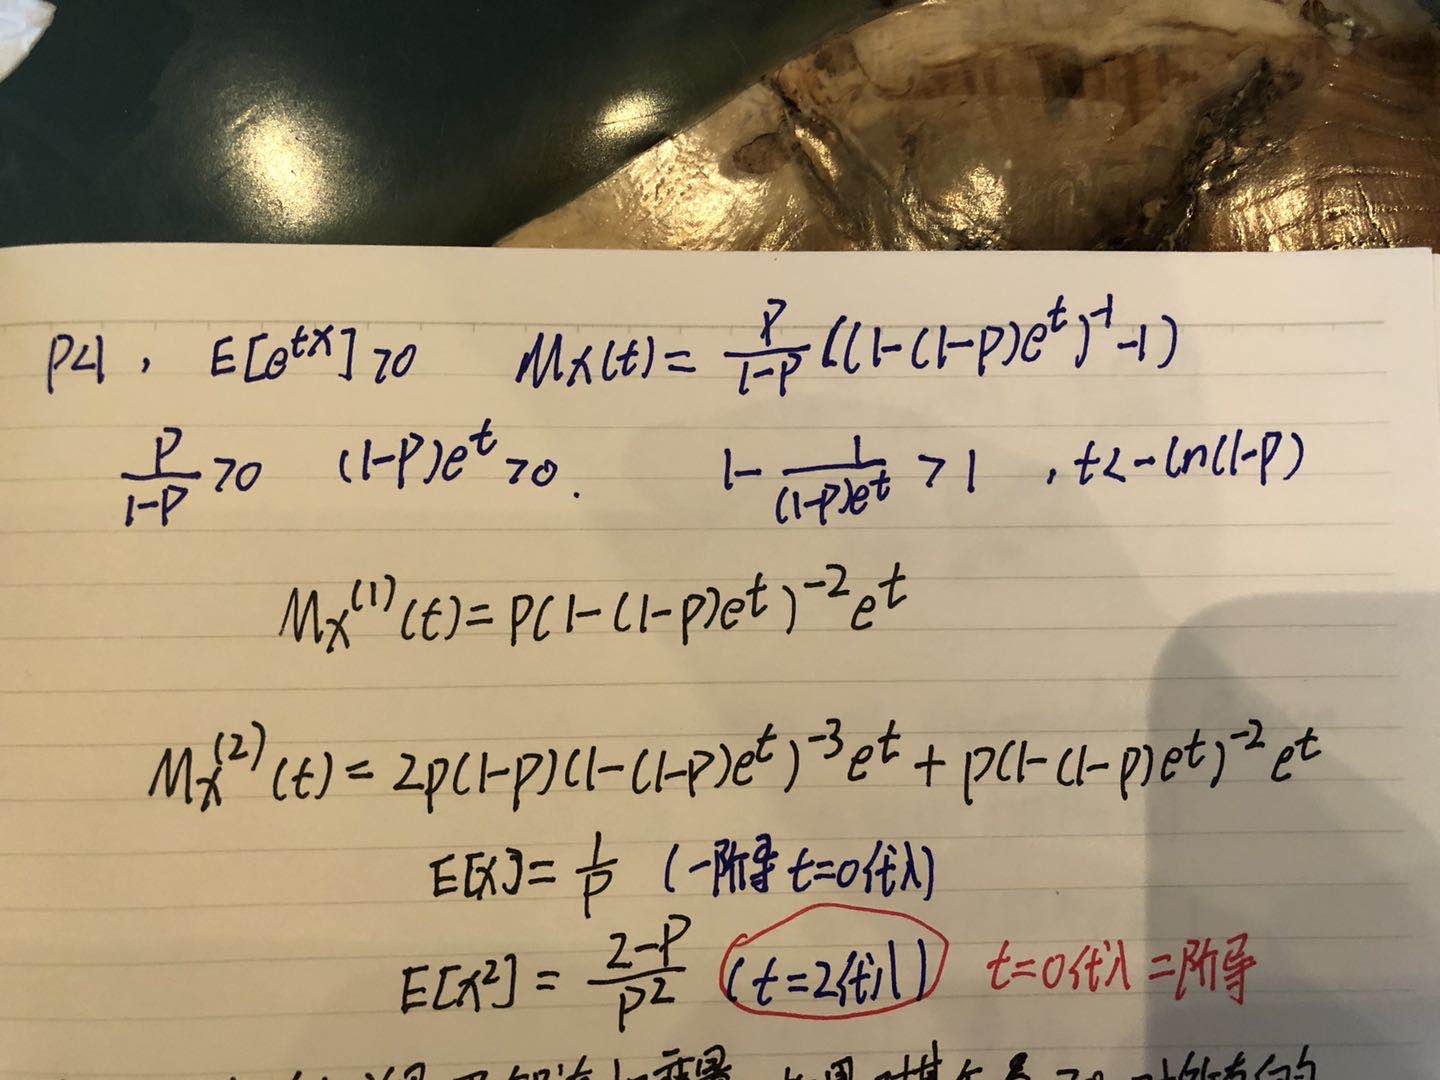 P<1, E[e^{tX}]>0 M_X(t)= \frac{P}{1-P}((1-(1-P)e^t)^{-1}-1)
\frac{P}{1-P}>0 (1-P)e^t>0. 1-\frac{1}{(1-P)e^t}>1, t<-ln(1-P)
M_X^{(1)}(t)=P(1-(1-P)e^t)^{-2}e^t
M_X^{(2)}(t)=2p(1-p)(1-(1-p)e^t)^{-3}e^t+p(1-(1-p)et)^{-2}e^t
E[X]=\frac{1}{P} (一阶导t=0代入)
E[X^2]=\frac{2-P}{P^2} (t=2代入) t=0代入二阶导